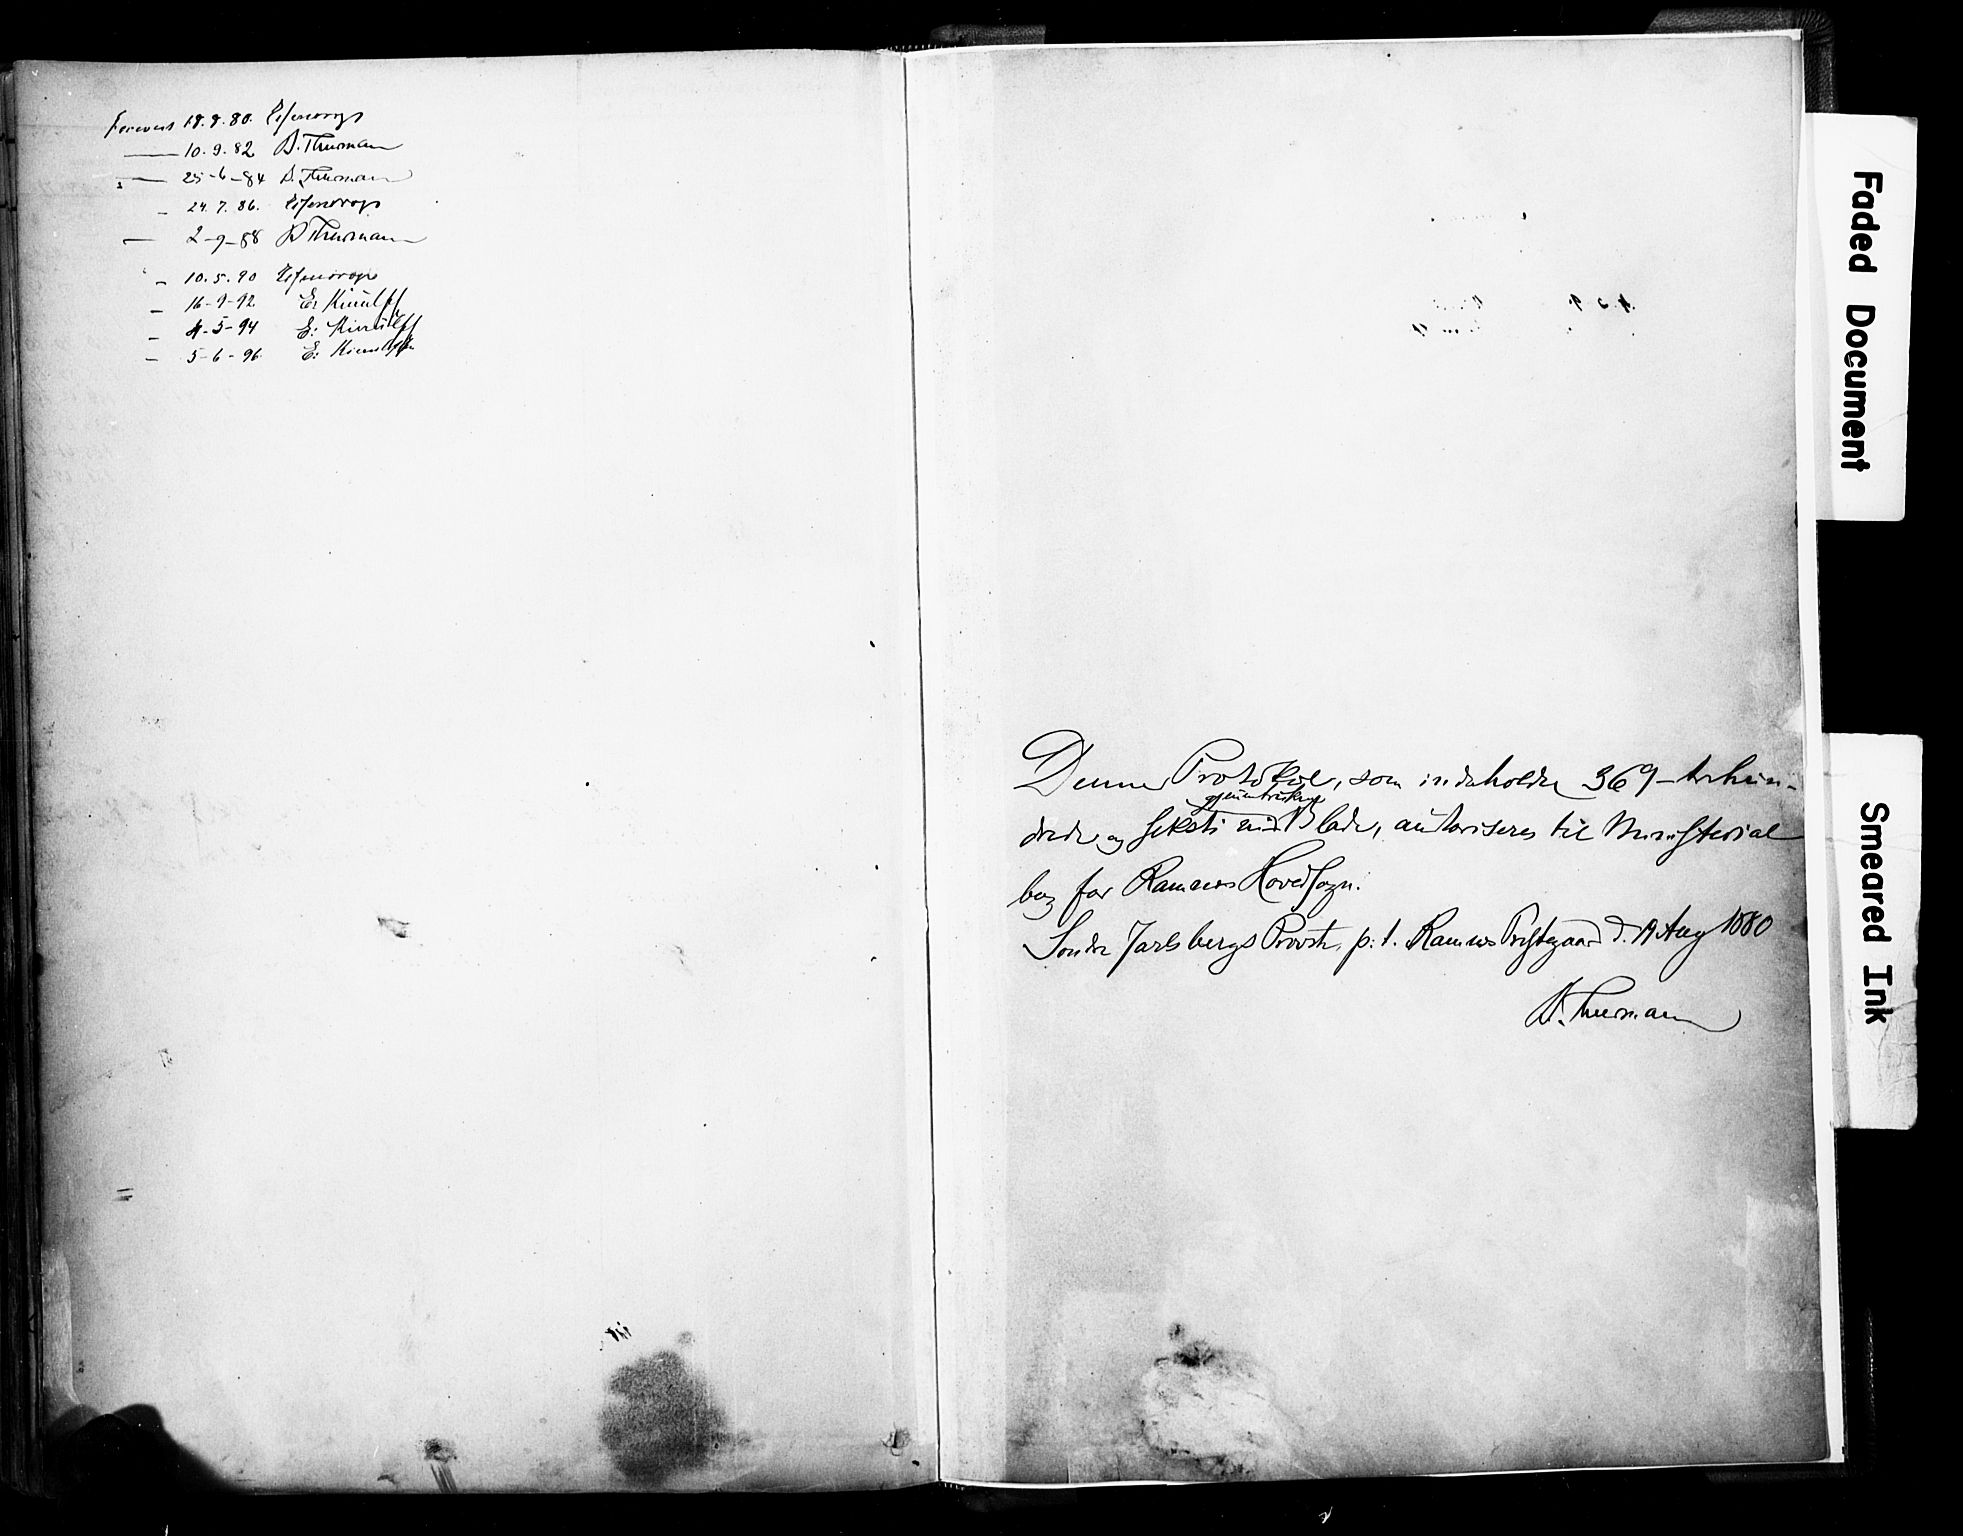 Forevist 18.8.80. Essendrop
— 10.9.82 D. Thurmann
— 25-6-84 D. Thurmann
- 24.7.86. Essendrop
— 2-9-88 D Thurmann
- 10.5.90 Essendrop
- 16-9-92 E: Kierulff
- 4-5-94 E: Kierulff
- 5-6-96 E: Kierulff
Denne Protokol, som indeholder 369-trehun-
drede og seksti ni gjennemtrukne Blade, autoriseres til Ministerial
bog for Ramnes Hovedsogn.
Søndre Jarlsbergs Provsti, p.t. Ramnes Præstegaard d. Aug 1880
D. Thurmann
Faded Document
Smeared Ink